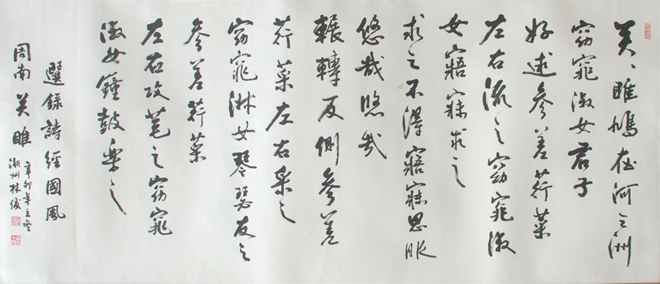 关々雎鳩在河之洲
窈窕淑女君子
好逑参差荇菜
左右流之窈窕淑
女寤寐求之
求之不得寤寐思服
悠哉悠哉
輾轉反側参差
荇菜左右采之
窈窕淑女琴瑟友之
参差荇菜
左右芼之窈窕
淑女鐘鼓樂之
選錄詩經國風
周南关雎
辛卯年立冬
潮州林